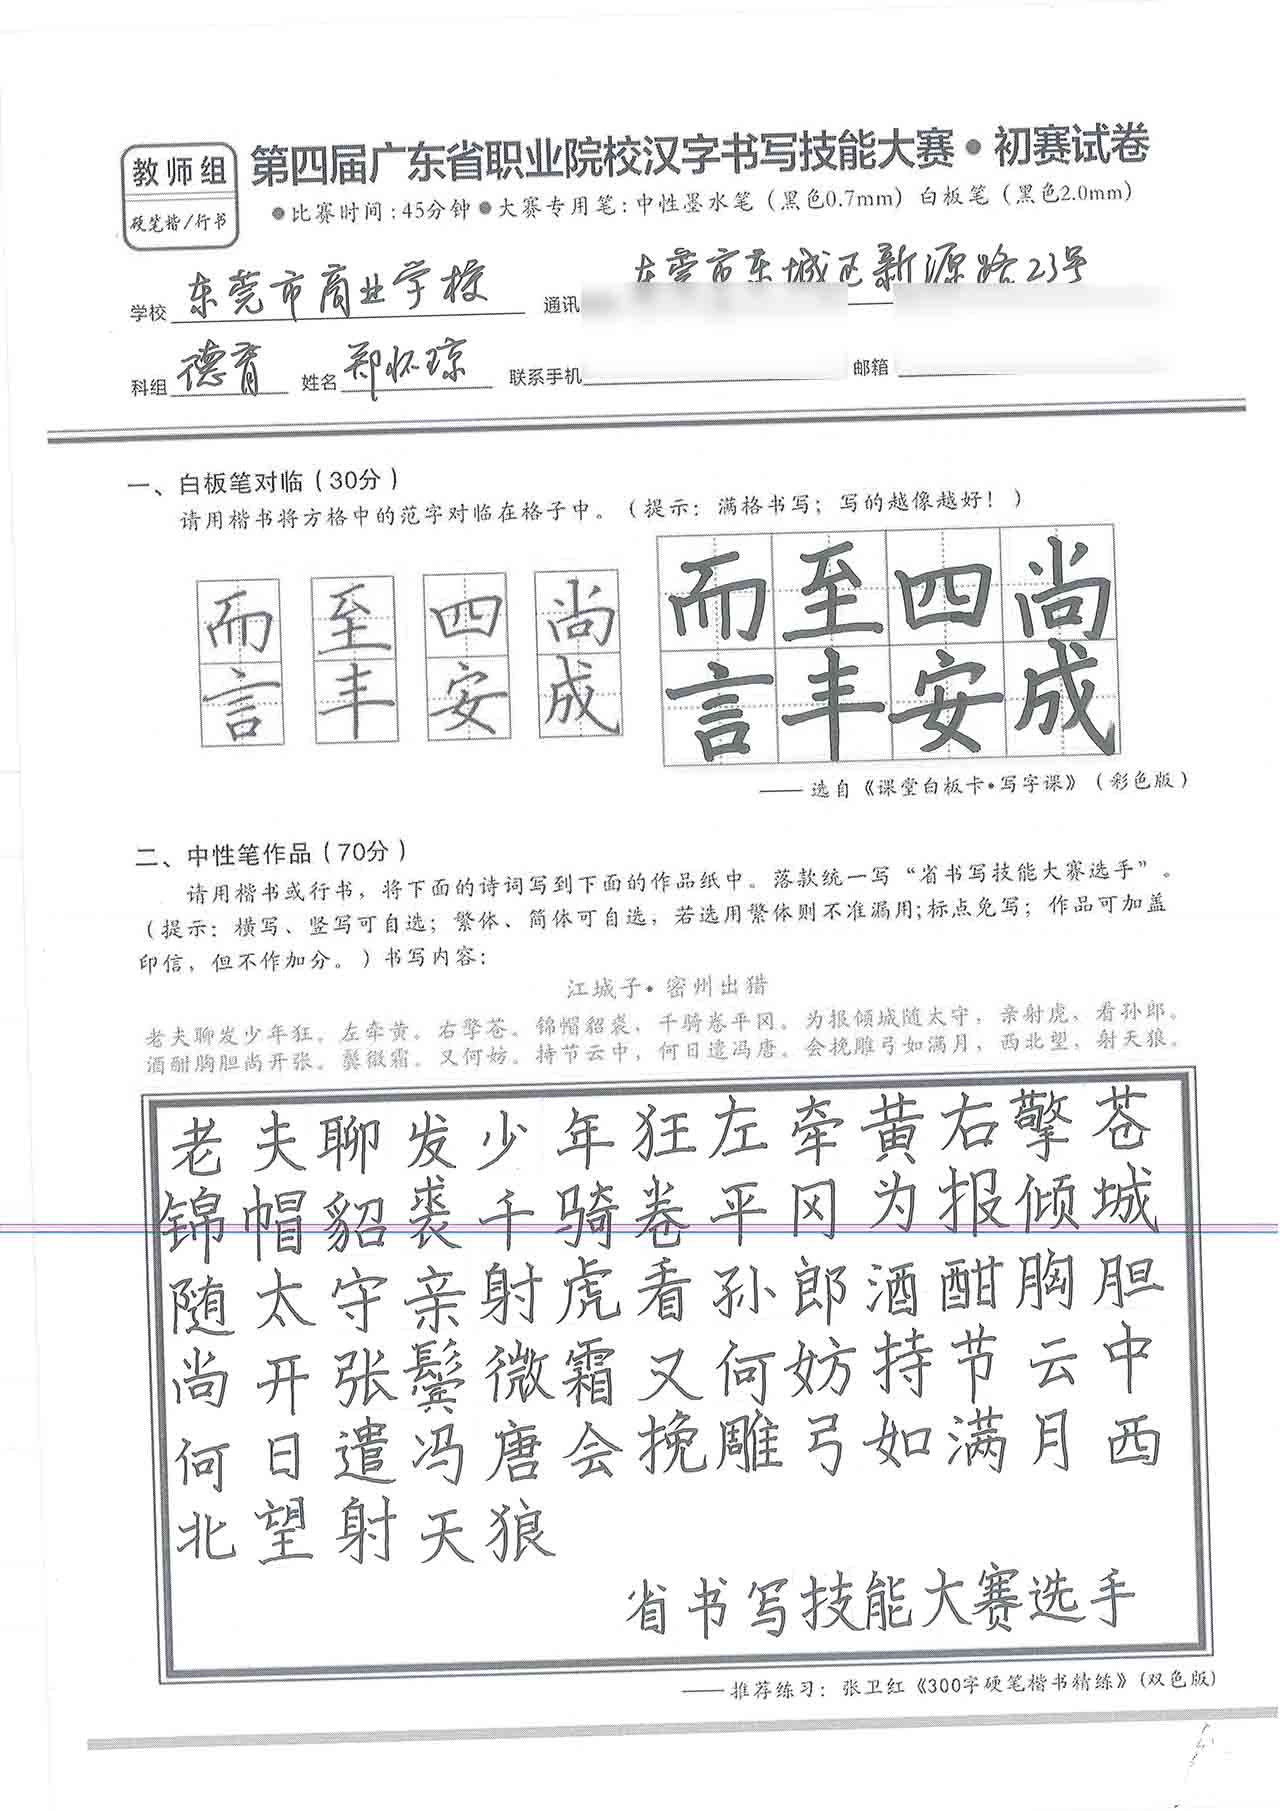 教师组
硬笔楷/行书
第四届广东省职业院校汉字书写技能大赛•初赛试卷
●比赛时间:45分钟●大赛专用笔:中性墨水笔(黑色0.7mm)白板笔(黑色2.0mm)
学校 东莞市商业学校 通讯 东莞市东城区新源路23号
科组 德育 姓名 郑怀琼 联系手机 邮箱
一、白板笔对临(30分)
请用楷书将方格中的范字对临在格子中。(提示:满格书写;写的越像越好!)
而 至 四 尚 而至四尚
言 丰 安 成 言丰安成
——选自《课堂白板卡•写字课》(彩色版)
二、中性笔作品(70分)
请用楷书或行书,将下面的诗词写到下面的作品纸中。落款统一写“省书写技能大赛选手”。
(提示:横写、竖写可自选;繁体、简体可自选,若选用繁体则不准漏用;标点免写;作品可加盖
印信,但不作加分。)书写内容:
江城子•密州出猎
老夫聊发少年狂。左牵黄。右擎苍。锦帽貂裘,千骑卷平冈。为报倾城随太守,亲射虎、看孙郎。
酒酣胸胆尚开张。鬓微霜。又何妨。持节云中,何日遣冯唐。会挽雕弓如满月,西北望,射天狼。
老夫聊发少年狂左牵黄右擎苍
锦帽貂裘千骑卷平冈为报倾城
随太守亲射虎看孙郎酒酣胸胆
尚开张鬓微霜又何妨持节云中
何日遣冯唐会挽雕弓如满月西
北望射天狼
省书写技能大赛选手
——推荐练习:张卫红《300字硬笔楷书精练》(双色版)